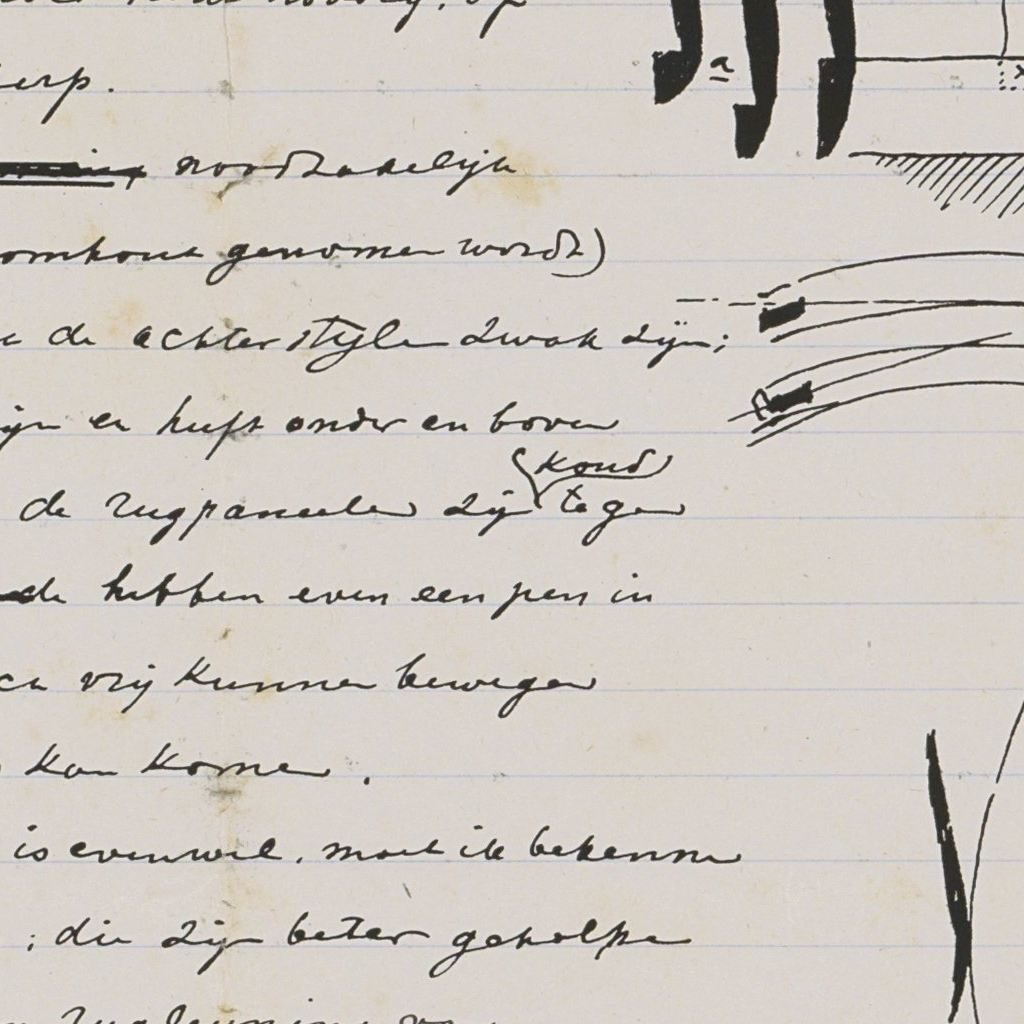 erp.
a
noodzakelijk
omhout genomen wordt)
de achterstijlen zwak zijn;
en heeft onder en boven
koud
de rugpaneelen zijn tegen
de hebben even een pen in
vrij kunnen bewegen
kan komen.
is evenwel, moet ik bekennen
; die zijn beter geholpen